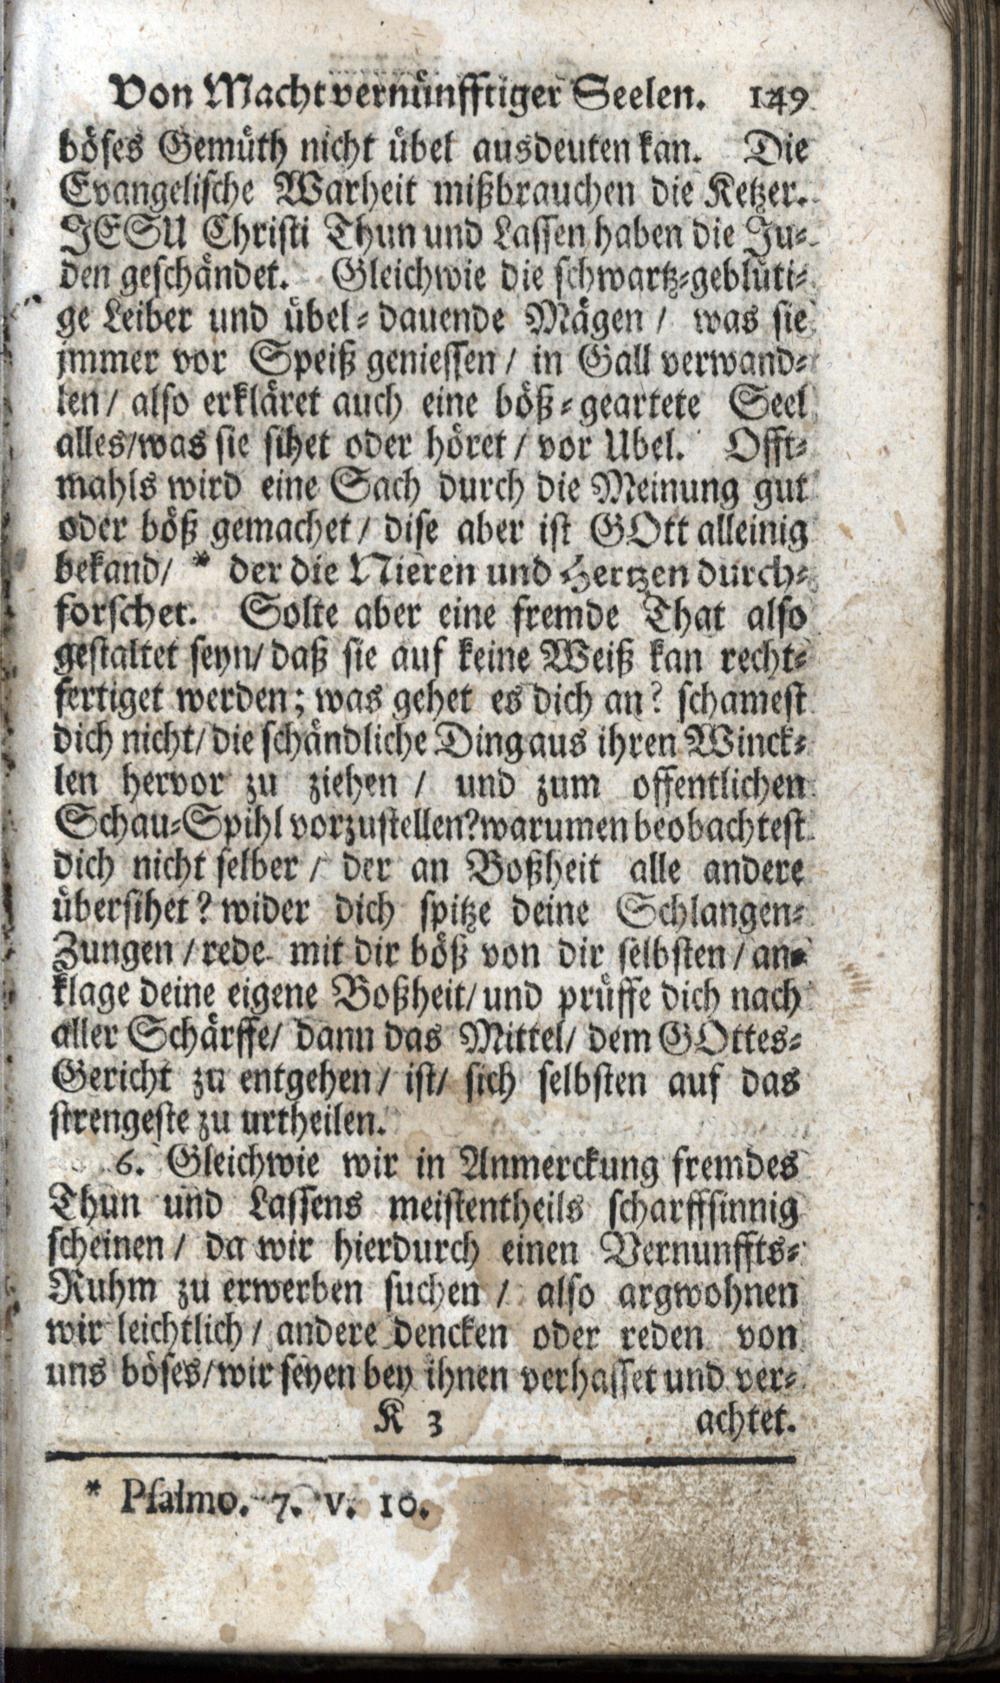 Von Macht vernünfftiger Seelen. 149
böses Gemüth nicht übel ausdeuten kan. Die
Evangelische Warheit mißbrauchen die Ketzer.
JESU Christi Thun und Lassen haben die Ju-
den geschändet. Gleichwie die schwartz-geblüti-
ge Leiber und übel-dauende Mägen / was sie
jmmer vor Speiß geniessen / in Gall verwand-
len / also erkläret auch eine böß-geartete Seel
alles/was sie sihet oder höret / vor Ubel. Offt-
mahls wird eine Sach durch die Meinung gut
oder böß gemachet / dise aber ist GOtt alleinig
bekand/ * der die Nieren und Hertzen durch-
forschet. Solte aber eine fremde That also
gestaltet seyn/ daß sie auf keine Weiß kan recht-
fertiget werden; was gehet es dich an? schamest
dich nicht/ die schändliche Ding aus ihren Winck-
len hervor zu ziehen / und zum offentlichen
Schau-Spihl vorzustellen?warumen beobachtest
dich nicht selber / der an Boßheit alle andere
übersihet? wider dich spitze deine Schlangen-
Zungen / rede mit dir böß von dir selbsten / an-
klage deine eigene Boßheit/ und prüffe dich nach
aller Schärffe/ dann das Mittel/ dem GOttes-
Gericht zu entgehen/ ist/ sich selbsten auf das
strengeste zu urtheilen.
6. Gleichwie wir in Anmerckung fremdes
Thun und Lassens meistentheils scharffsinnig
scheinen / da wir hierdurch einen Vernunffts-
Ruhm zu erwerben suchen / also argwohnen
wir leichtlich / andere dencken oder reden von
uns böses/wir seyen bey ihnen verhasset und ver-
K 3 achtet.
* Psalmo. 7. v. 10.